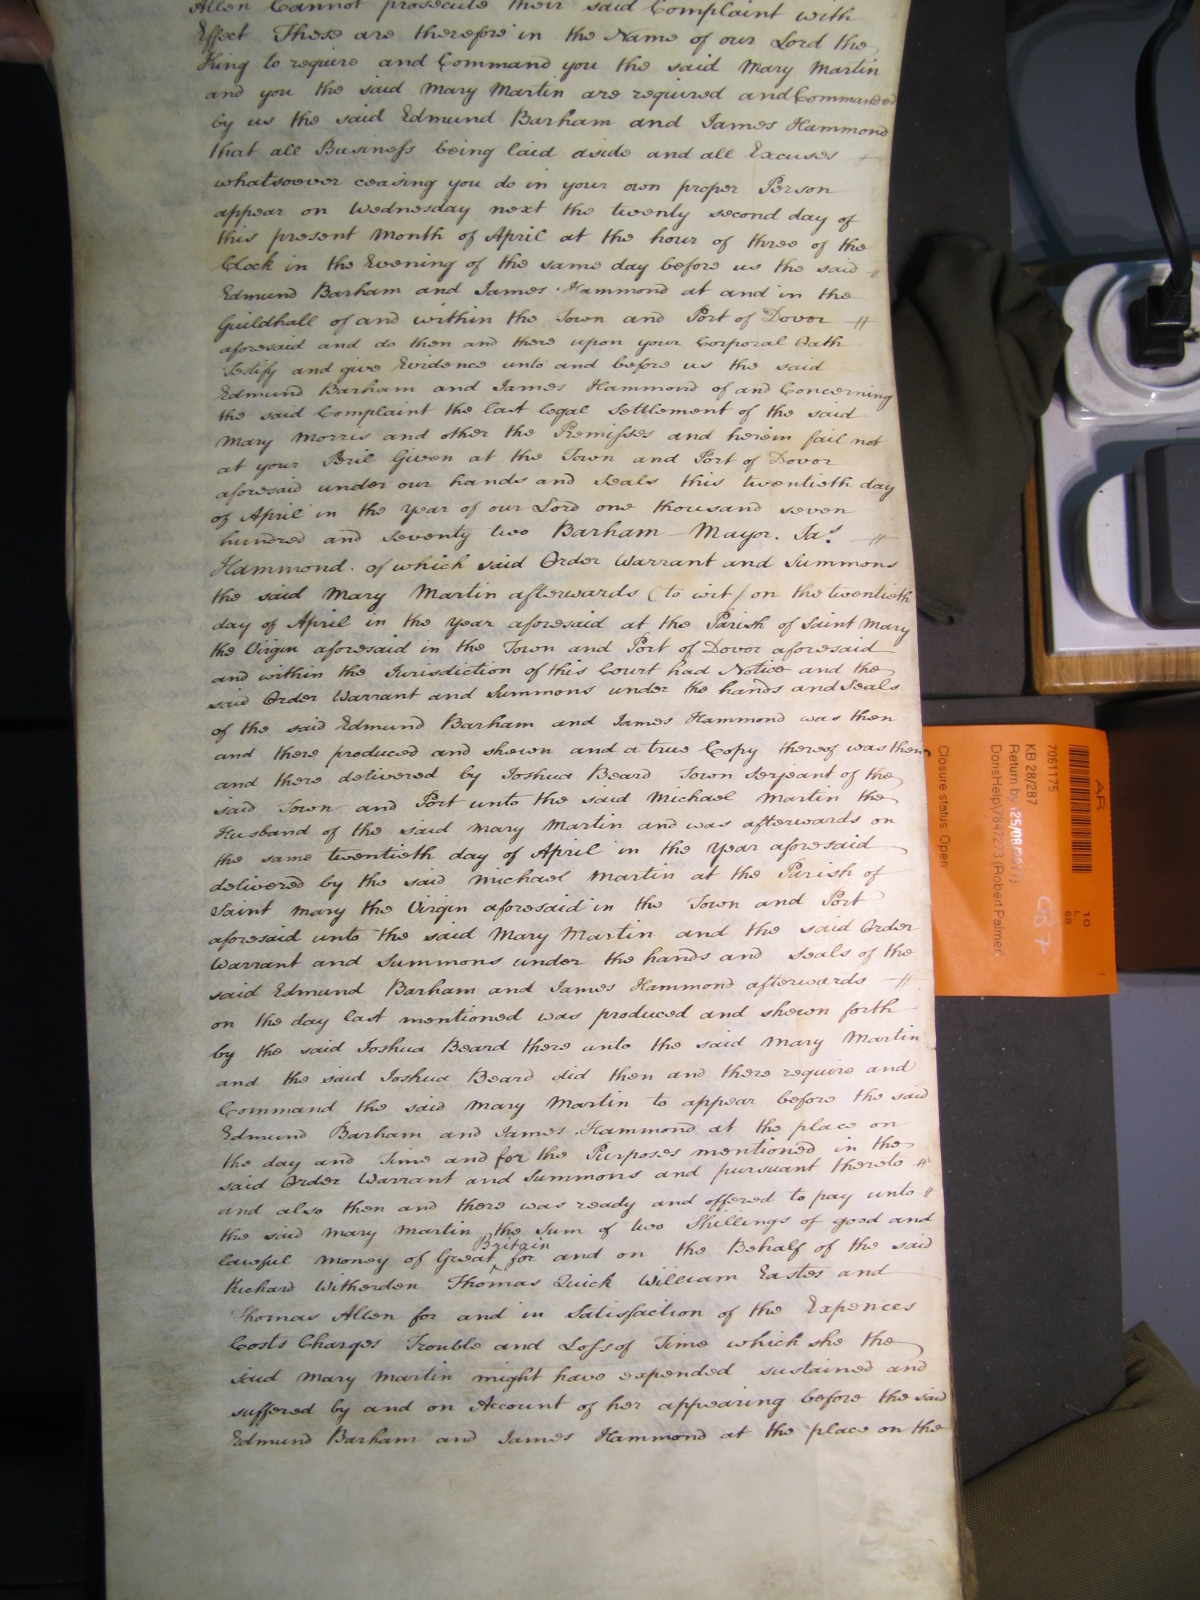 Allen Cannot prosecute their said Complaint with
Effect These are therefore in the Name of our Lord the
King to require and Command you the said Mary Martin
and you the said Mary Martin are required and Commanded
by us the said Edmund Barham and James Hammond
that all Business being laid aside and all Excuses
whatsoever ceasing you do in your own proper Person
appear on Wednesday next the twenty second day of
this present Month of April at the hour of three of the
Clock in the Evening of the same day before us the said
Edmund Barham and James Hammond at and in the
Guildhall of and within the Town and Port of Dovor
aforesaid and do then and there upon your Corporal Oath
testify and give Evidence unto and before us the said
Edmund Barham and James Hammond of and Concerning
the said Complaint the last legal Settlement of the said
Mary Morris and other the Premisses and herein fail not
at your Peril Given at the Town and Port of Dovor
aforesaid under our hands and Seals this twentieth day
of April in the year of our Lord one thousand seven
hundred and seventy two Barham Mayor. Jas.
Hammond. of which said Order Warrant and Summons
the said Mary Martin afterwards (to wit) on the twentieth
day of April in the year aforesaid at the Parish of Saint Mary
the Virgin aforesaid in the Town and Port of Dovor aforesaid
and within the Jurisdiction of this Court had Notice and the
said Order Warrant and Summons under the hands and Seals
of the said Edmund Barham and James Hammond was then
and there produced and shewn and a true Copy thereof was then
and there delivered by Joshua Beard Town Serjeant of the
said Town and Port unto the said Michael Martin the
Husband of the said Mary Martin and was afterwards on
the same twentieth day of April in the Year aforesaid
delivered by the said Michael Martin at the Parish of
Saint Mary the Virgin aforesaid in the Town and Port
aforesaid unto the said Mary Martin and the said Order
Warrant and Summons under the hands and Seals of the
said Edmund Barham and James Hammond afterwards
on the day last mentioned was produced and shewn forth
by the said Joshua Beard there unto the said Mary Martin
and the said Joshua Beard did then and there require and
Command the said Mary Martin to appear before the said
Edmund Barham and James Hammond at the place on
the day and Time and for the Purposes mentioned in the
said Order Warrant and Summons and pursuant thereto
and also then and there was ready and offered to pay unto
the said Mary Martin the Sum of two Shillings of good and
lawful money of Great Britain for and on the Behalf of the said
Richard Witherden Thomas Quick William Eastes and
Thomas Allen for and in Satisfaction of the Expences
Costs Charges Trouble and Loss of Time which she the
said Mary Martin might have expended sustained and
suffered by and on Account of her appearing before the said
Edmund Barham and James Hammond at the place on the
AR
7061175
KB 28/287
Return by 25/08/2011
DorisHelp\7847273 (Robert Palmer)
Closure status Open
10
L
66